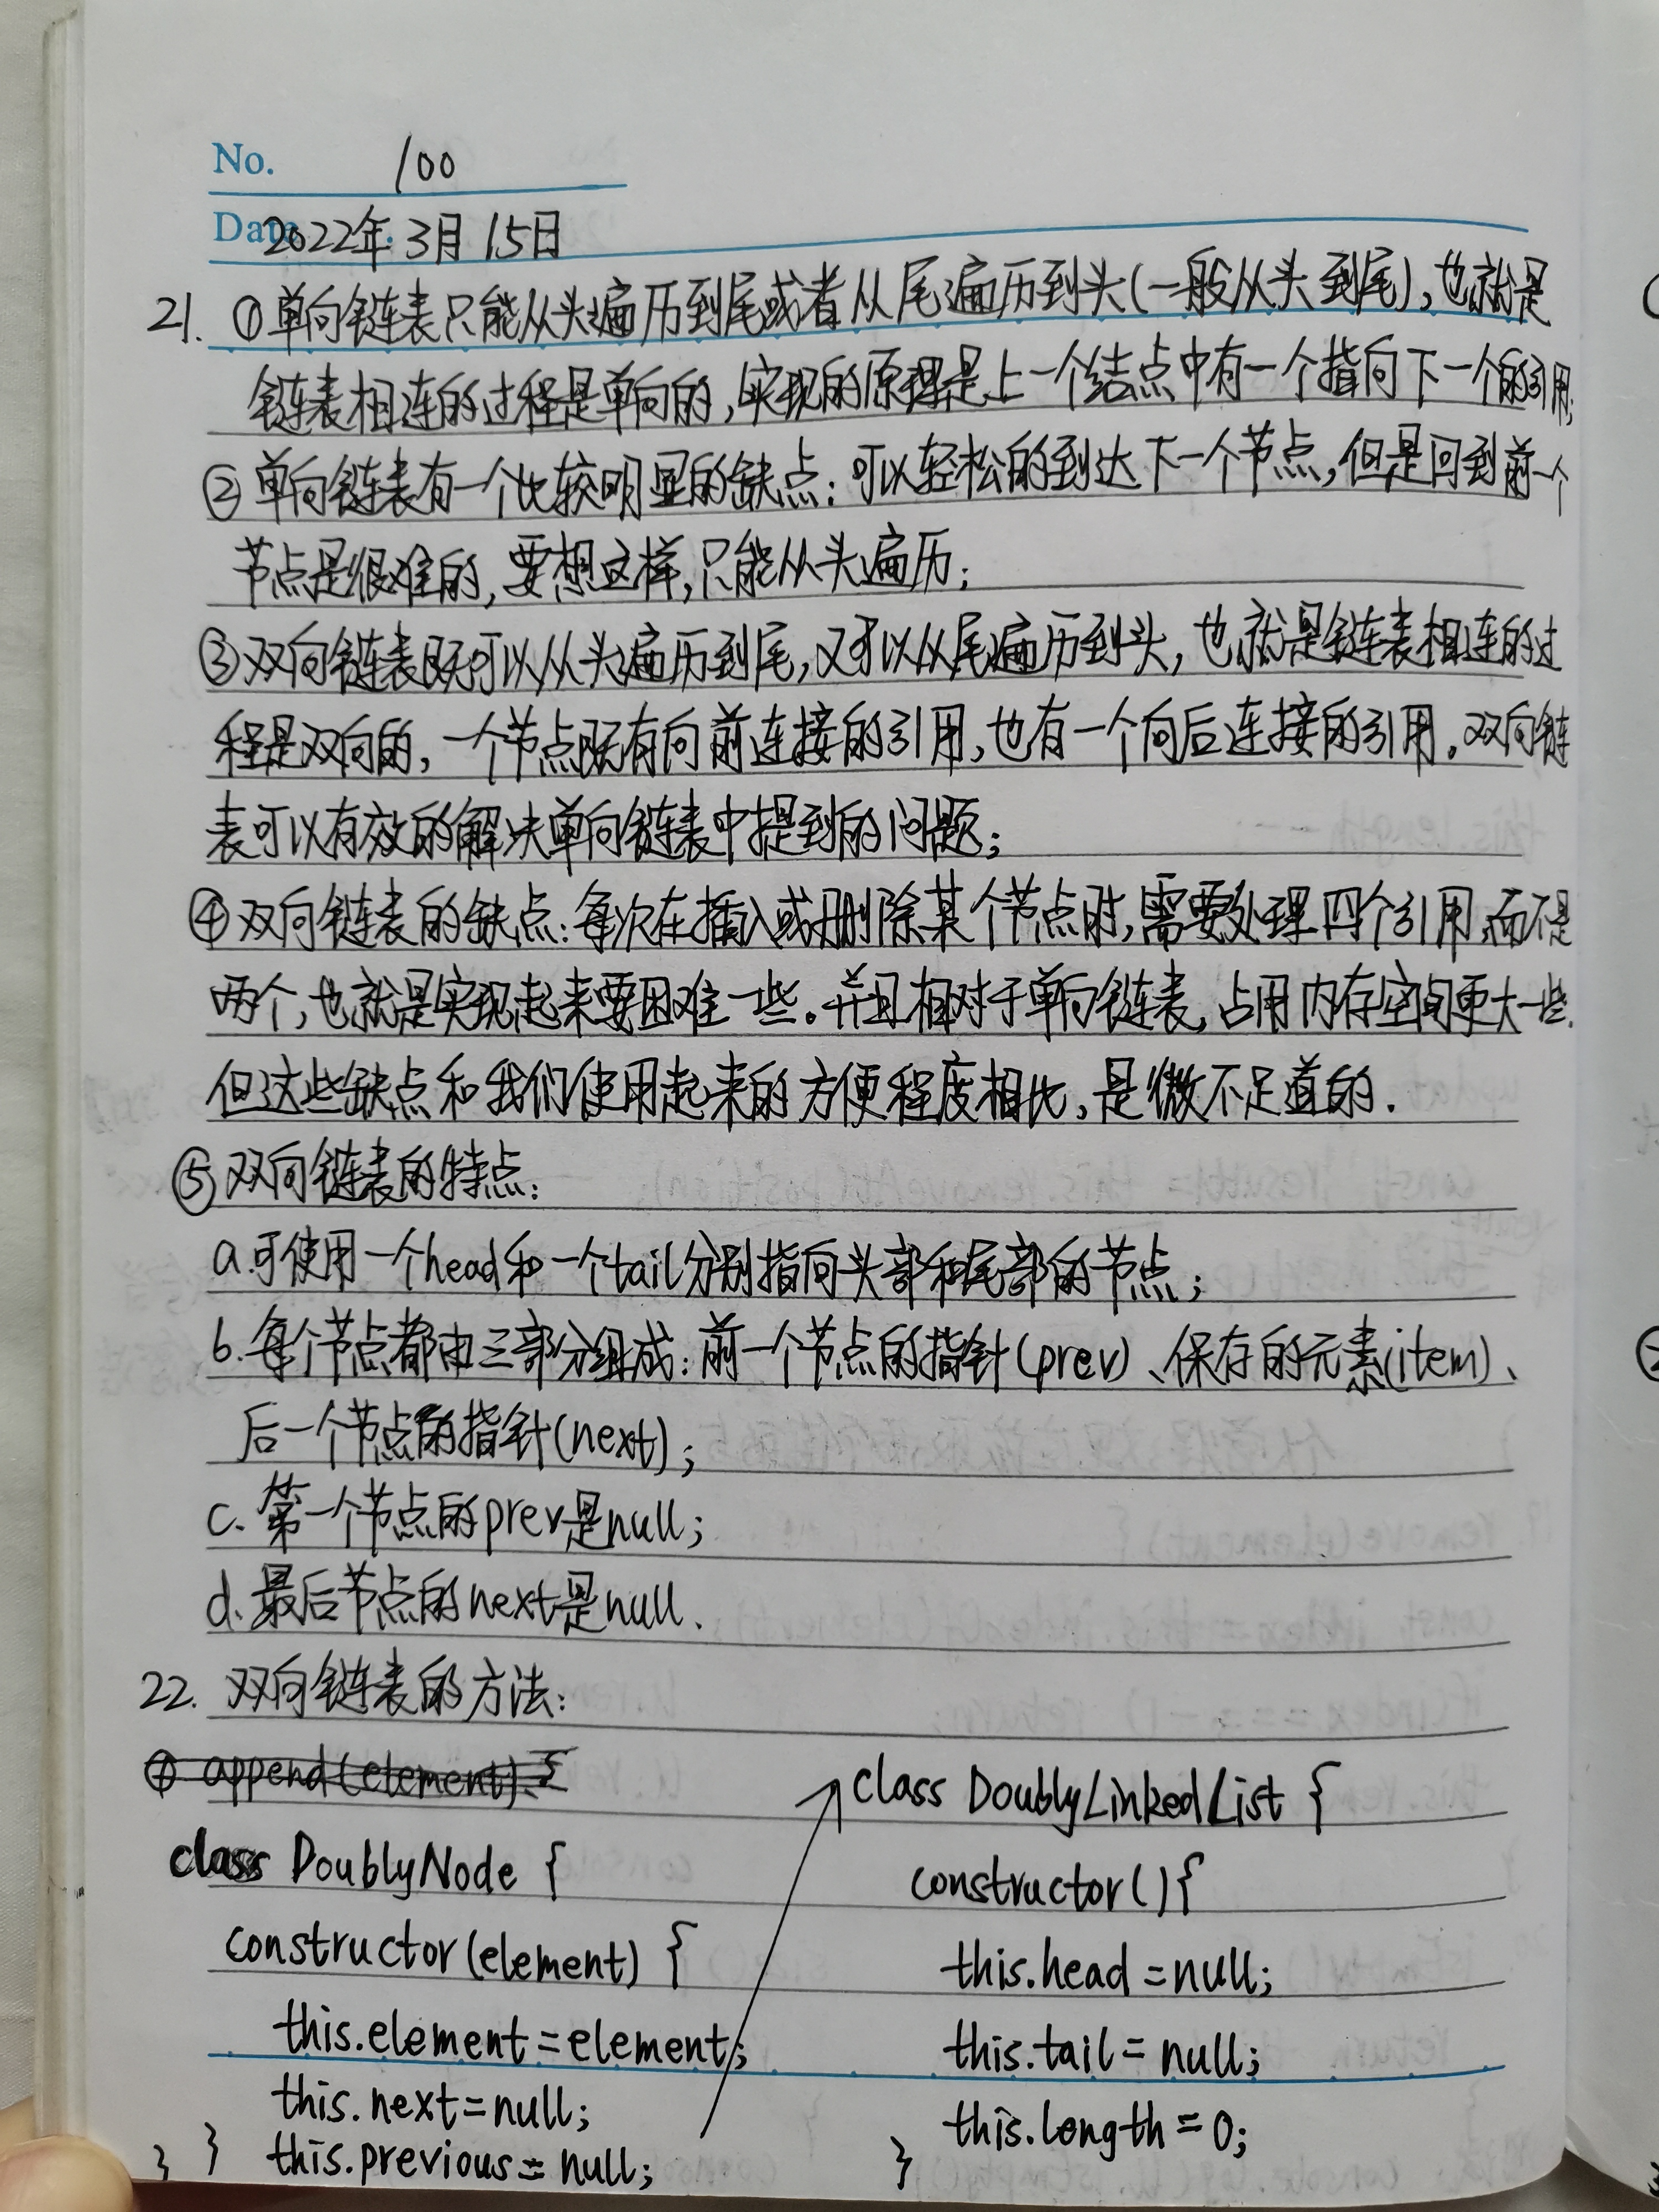 No. 100
Date. 2022年3月15日
21. ①单向链表只能从头遍历到尾或者从尾遍历到头(一般从头到尾),也就是
链表相连的过程是单向的,实现的原理是上一个结点中有一个指向下一个的引用;
②单向链表有一个比较明显的缺点:可以轻松的到达下一个节点,但是回到前一个
节点是很难的,要想这样,只能从头遍历;
③双向链表既可以从头遍历到尾,又可以从尾遍历到头,也就是链表相连的过
程是双向的,一个节点既有向前连接的引用,也有一个向后连接的引用。双向链
表可以有效的解决单向链表中提到的问题;
④双向链表的缺点:每次在插入或删除某个节点时,需要处理四个引用,而不是
两个,也就是实现起来要困难一些。并且相对于单向链表,占用内存空间更大一些.
但这些缺点和我们使用起来的方便程度相比,是微不足道的.
⑤双向链表的特点:
a.可使用一个head和一个tail分别指向头部和尾部的节点;
b.每个节点都由三部分组成:前一个节点的指针(prev)、保存的元素(item)、
后一个节点的指针(next);
c.第一个节点的prev是null;
d.最后节点的next是null.
22. 双向链表的方法:
① append(element) {
class DoublyNode {
constructor(element) {
this.element=element;
this.next=null;
} } this.previous=null;
class DoublyLinkedList {
constructor(){
this.head=null;
this.tail=null;
this.length=0;
}